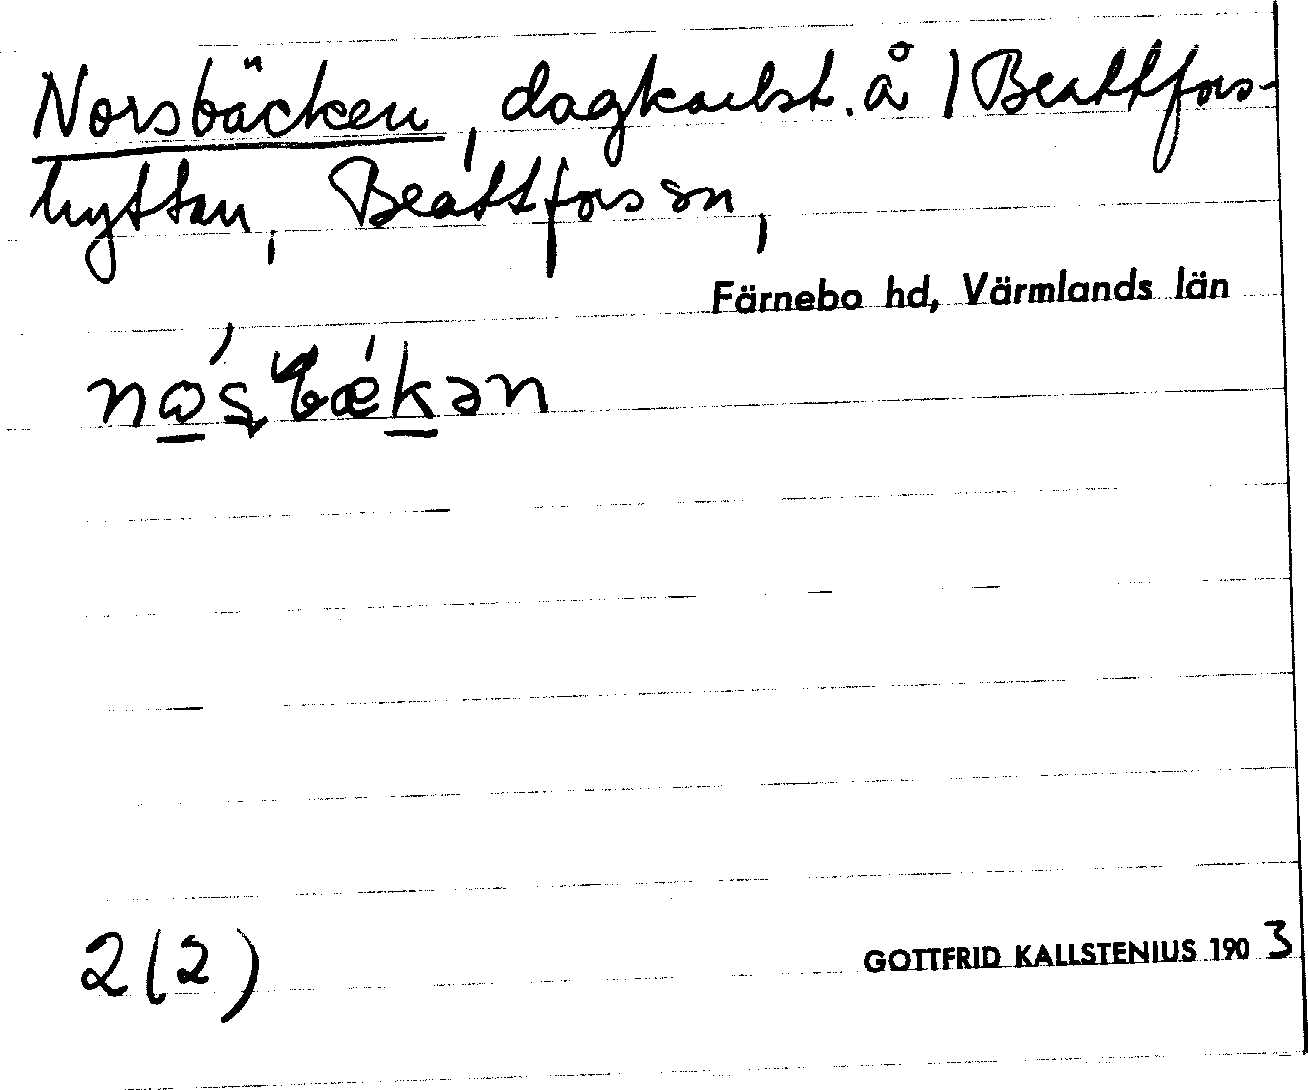 Norsbäcken, dagkarlst. å 1 Brattfors-
hyttan, Brattfors sn,
Färnebo hd, Värmlands län
2(2)
GOTTFRID KALLSTENIUS 1903